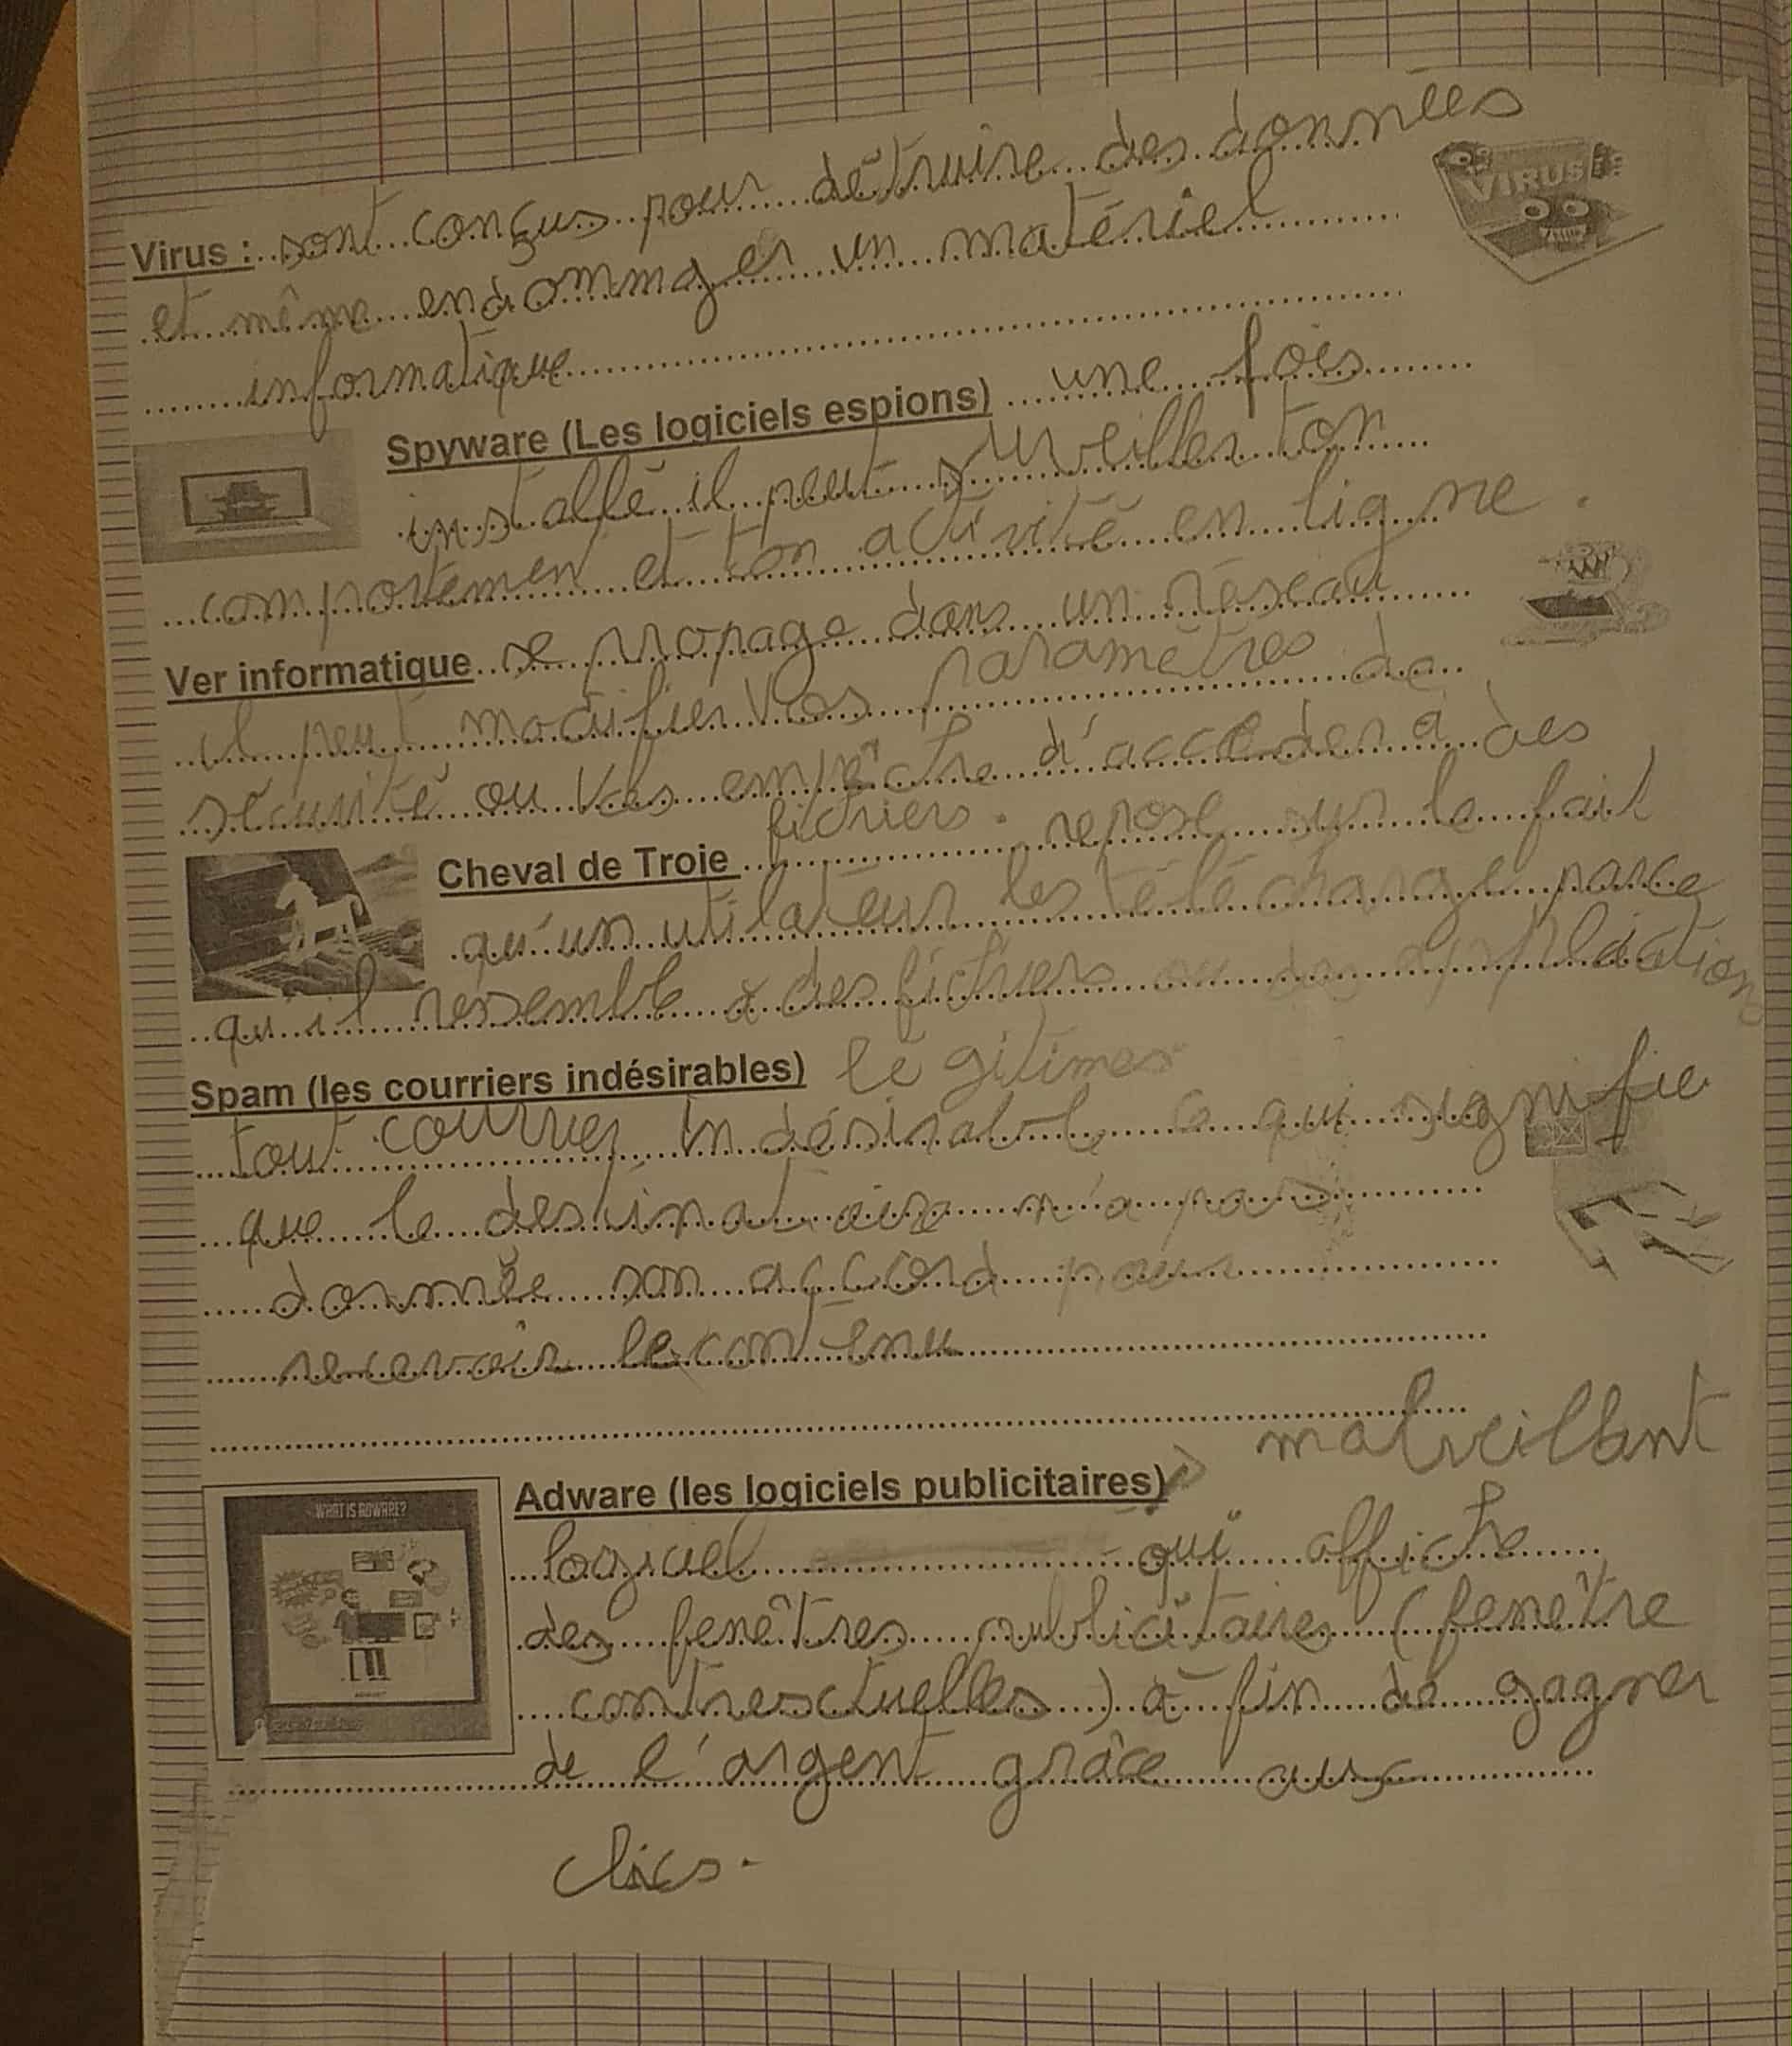 Virus : sont conçus pour détruire des données
VIRUS
et même endommager un matériel
informatique
Spyware (Les logiciels espions) une fois
installé il peut surveiller ton
comportemen et ton activité en ligne.
Ver informatique se propage dans un réseau
il peut modifier vos paramètres de
sécurité ou vos empêche d'acceder à des
fichiers.
Cheval de Troie repose sur le fait
qu'un utilateur les télécharge parce
qu'il ressemble à des fichiers ou des application
Spam (les courriers indésirables) légitimes
tout courrier indésirable ce qui signifie
que le destinataire n'a pas
donnée son accord pour
recevoir le contenu
malveillant
Adware (les logiciels publicitaires)
WHAT IS ADWARE?
logiciel qui affiche
des fenêtres publicitaires (fenêtre
contrexctuelles) à fin de gagner
de l'argent grâce aux
clics.